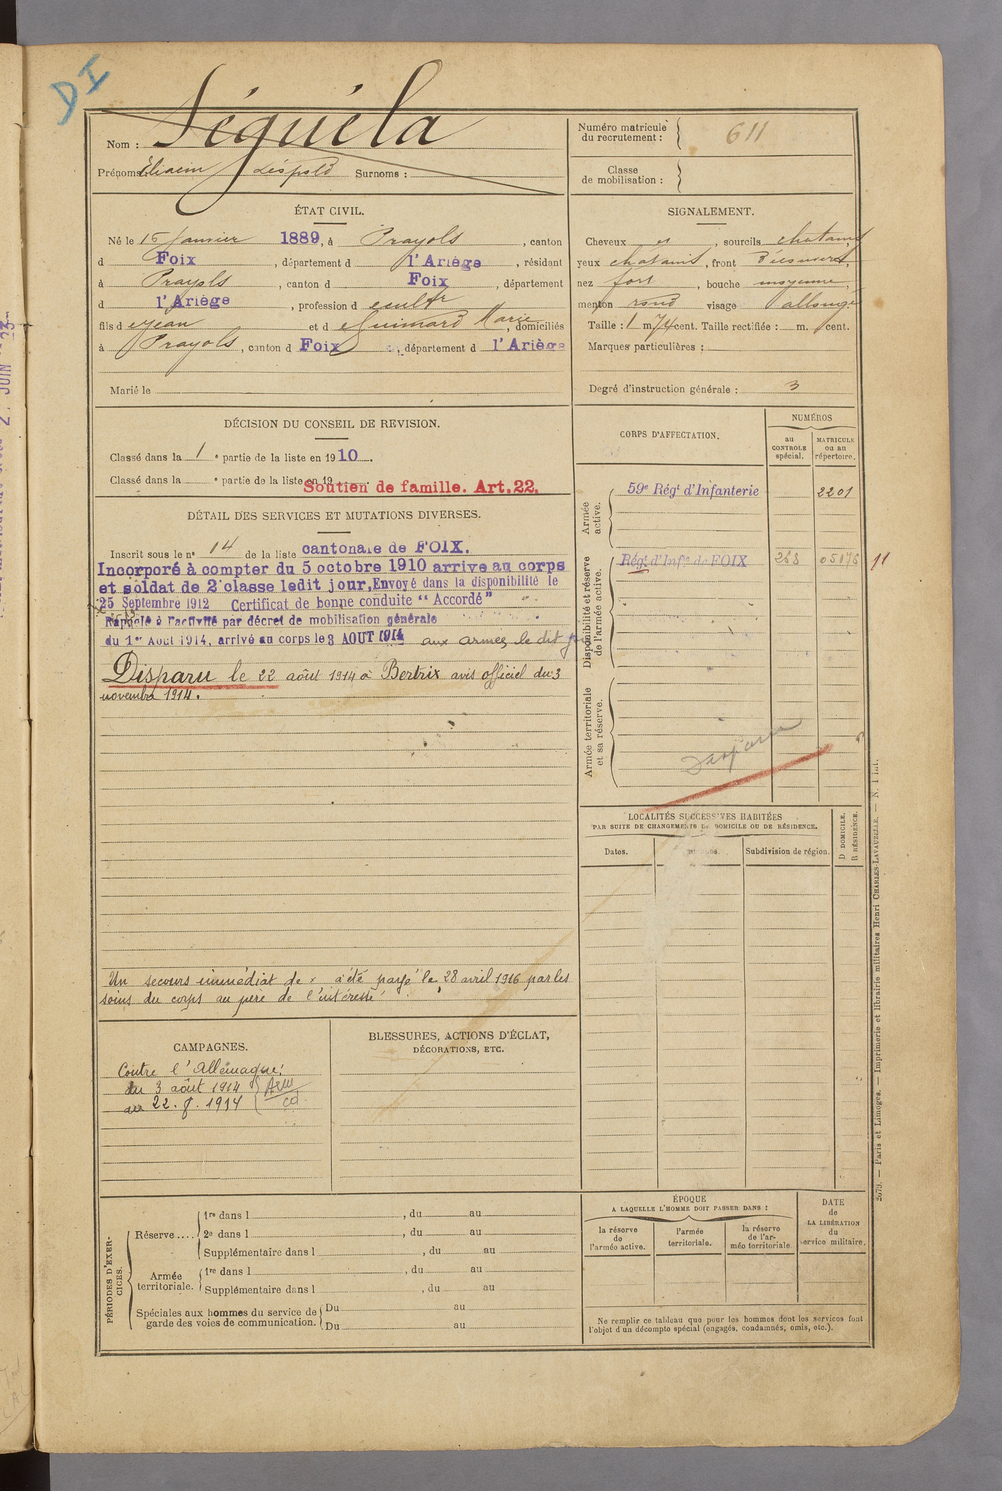 DI
Séguéla
Nom :
Prénoms : Eliacin Léopold Surnoms :
Numéro matricule du recrutement : 611
Classe de mobilisation :
ÉTAT CIVIL.
Né le 15 Janvier 1889, à Prayols, canton
d Foix, département d l'Ariège, résidant
à Prayols, canton d Foix, département
d l'Ariège, profession d cultr
fils d e Jean et d e Guimard Marie, domiciliés
à Prayols, canton d Foix, département d l'Ariège
Marié le
SIGNALEMENT.
Cheveux et, sourcils chatains,
yeux chatains, front découvert,
nez fort, bouche moyenne,
menton rond visage allongé
Taille : 1 m. 74 cent. Taille rectifiée : m. cent.
Marques particulières :
Degré d'instruction générale : 3
DÉCISION DU CONSEIL DE REVISION.
Classé dans la 1e partie de la liste en 1910.
Classé dans la e partie de la liste en 19
Soutien de famille. Art. 22.
DÉTAIL DES SERVICES ET MUTATIONS DIVERSES.
Inscrit sous le n° 14 de la liste cantonale de FOIX.
Incorporé à compter du 5 octobre 1910 arrive au corps
et soldat de 2e classe ledit jour, Envoyé dans la disponibilité le
25 Septembre 1912 Certificat de bonne conduite "Accordé"
Rappelé à l'activité par décret de mobilisation générale
du 1er Août 1914, arrivé au corps le 3 AOUT 1914 aux armes le dit
Disparu le 22 août 1914 à Bertrix avis officiel du 3
novembre 1914.
Un secours immédiat de a été payé le 28 avril 1916 par les
soins du corps au père de l'intéressé
CORPS D'AFFECTATION.
NUMÉROS
au CONTROLE spécial.
MATRICULE ou au répertoire.
Armée active.
59e Régt d'Infanterie 2201
Disponibilité et réserve de l'armée active.
Régt d'Infie de FOIX 268 05176 11
Armée territoriale et sa réserve.
Disparu
LOCALITÉS SUCCESSIVES HABITÉES
PAR SUITE DE CHANGEMENTS DE DOMICILE OU DE RÉSIDENCE.
Dates.
Subdivision de région.
D DOMICILE.
R RÉSIDENCE.
CAMPAGNES.
Contre l'Allemagne :
du 3 août 1914
au 22. 8. 1914
BLESSURES, ACTIONS D'ÉCLAT,
DÉCORATIONS, ETC.
PÉRIODES D'EXERCICES.
Réserve....
1re dans l , du au
2e dans l , du au
Supplémentaire dans l , du au
Armée territoriale.
1re dans l , du au
Supplémentaire dans l , du au
Spéciales aux hommes du service de garde des voies de communication.
Du au
Du au
ÉPOQUE
A LAQUELLE L'HOMME DOIT PASSER DANS :
la réserve de l'armée active.
l'armée territoriale.
la réserve de l'armée territoriale.
DATE de LA LIBÉRATION du service militaire.
Ne remplir ce tableau que pour les hommes dont les services font
l'objet d'un décompte spécial (engagés, condamnés, omis, etc.).
Paris et Limoges. — Imprimerie et librairie militaires Henri CHARLES-LAVAUZELLE.